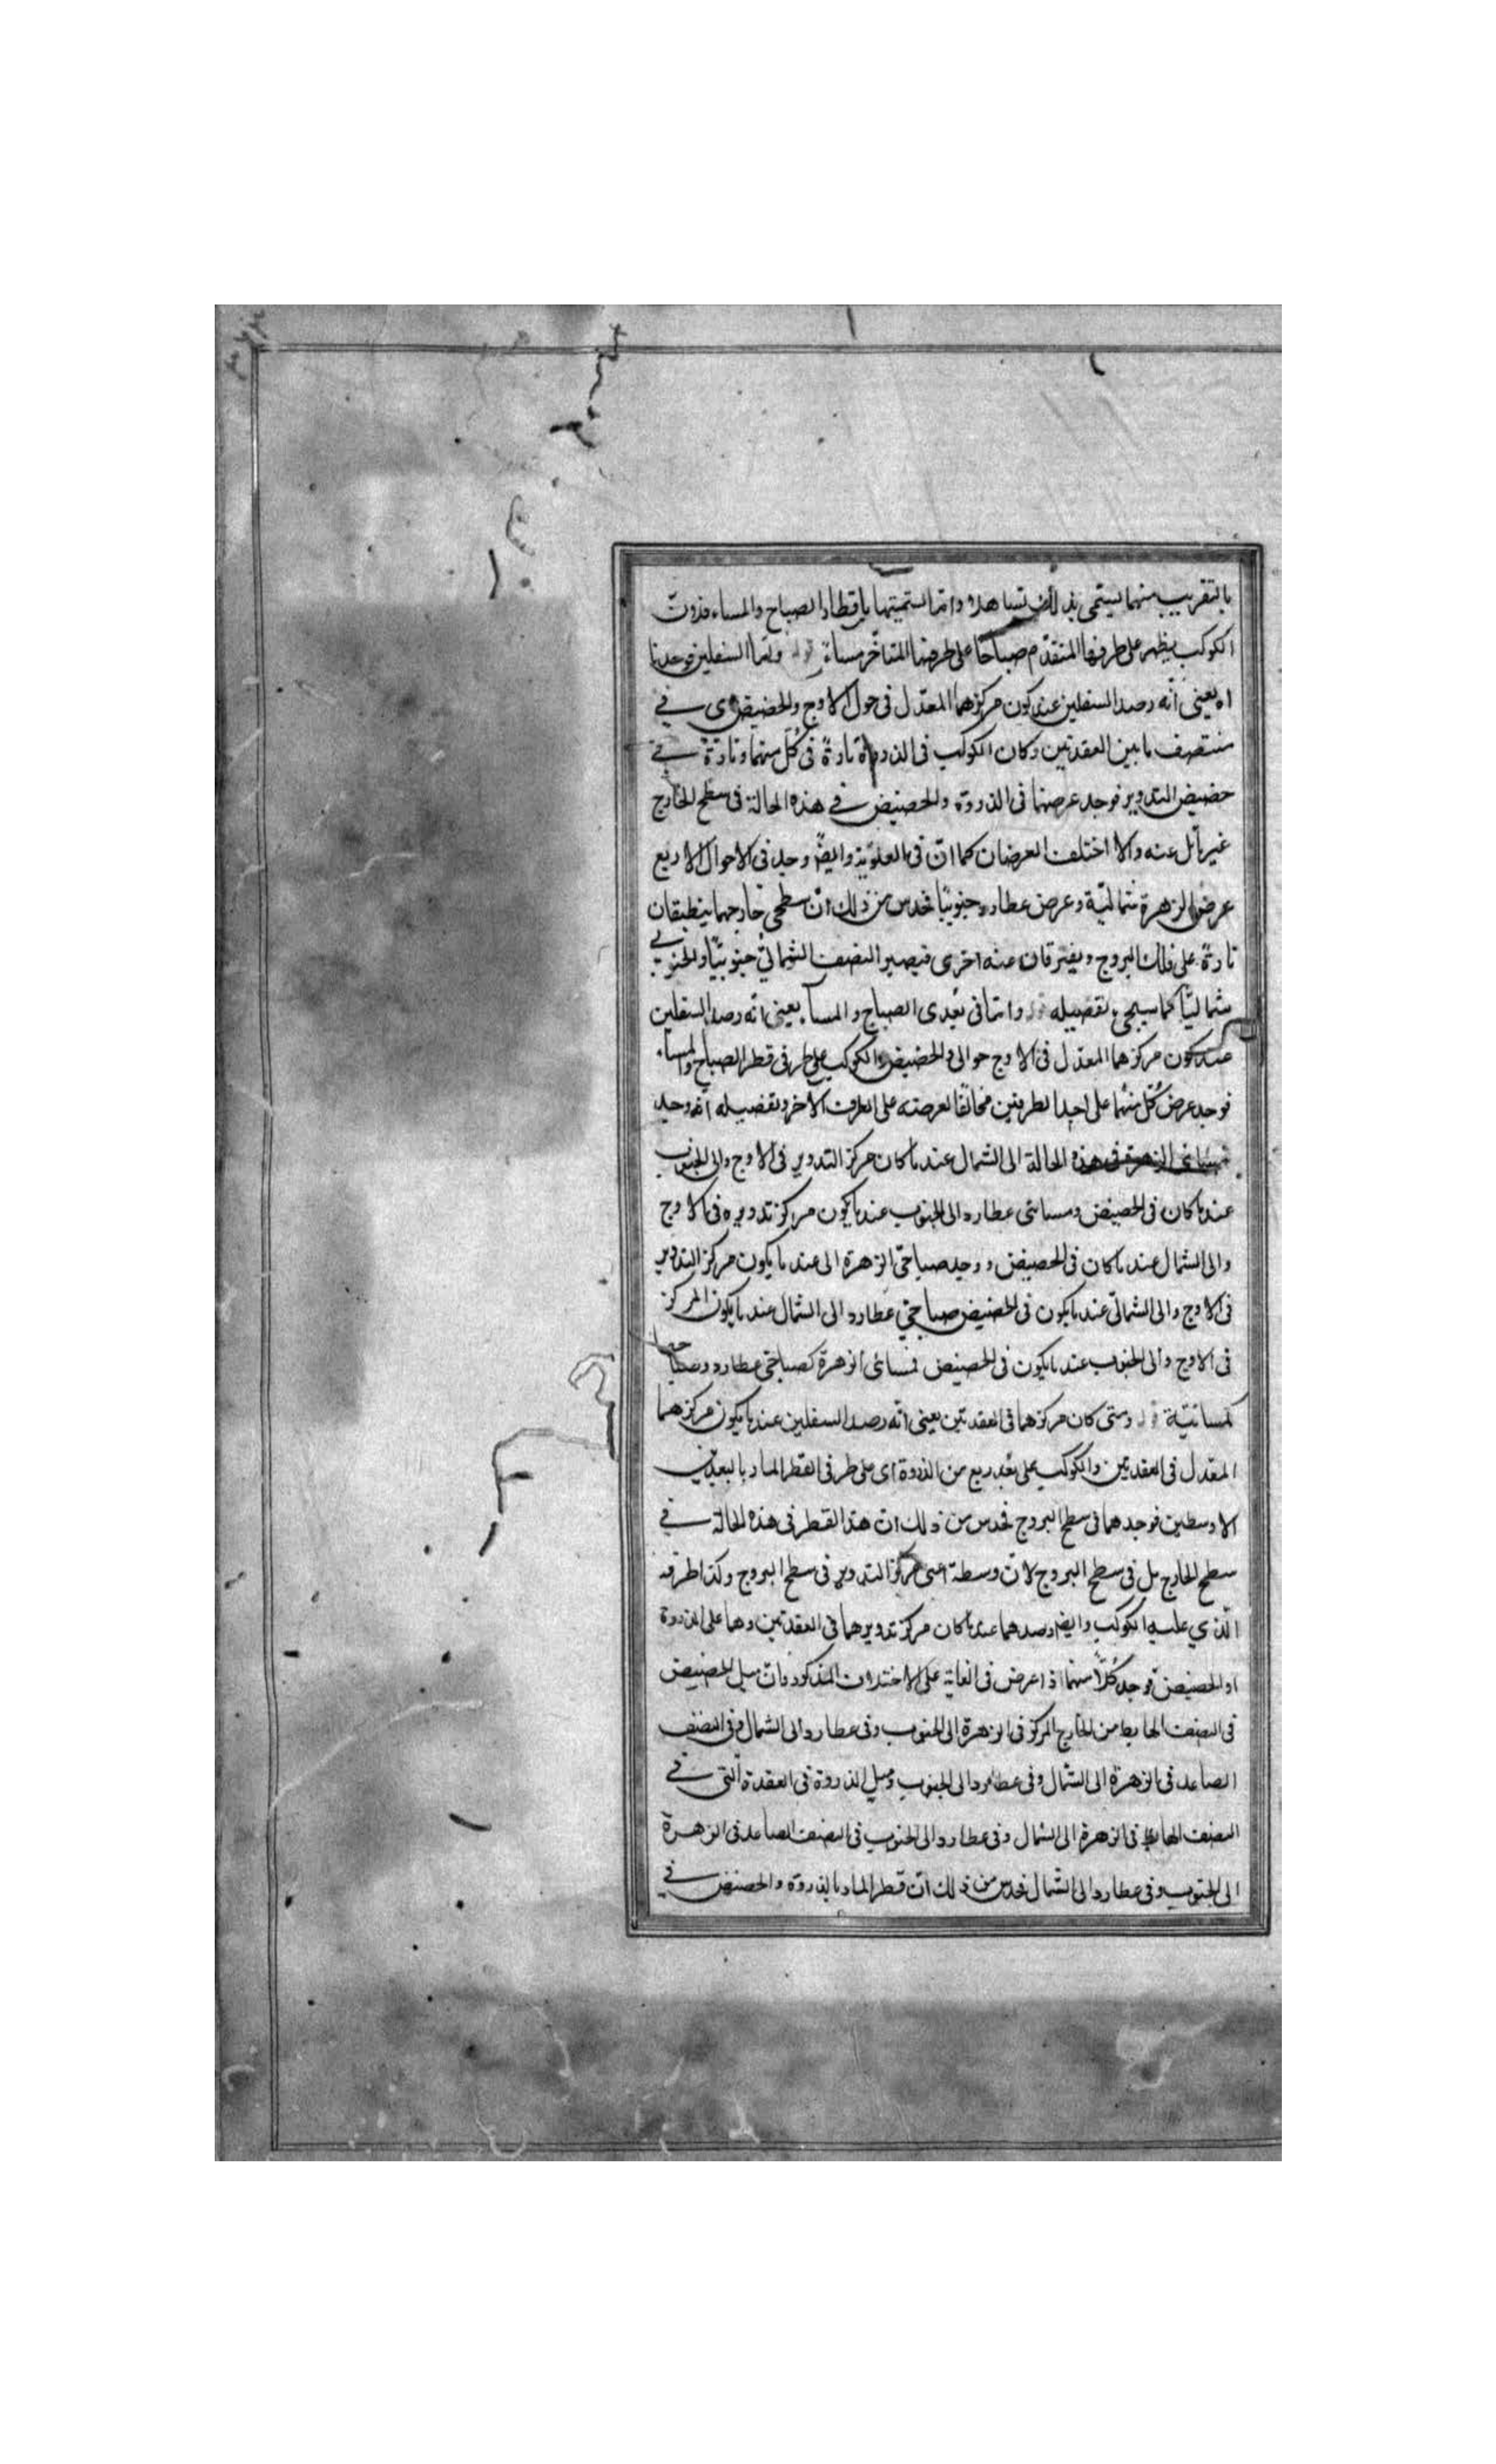 بالتقريب منهما يستمى بذلك تساهلا وانما استميتها باقطار الصباح والمساء فذوت
الكوكب يظهر على طرفها المتقدم صباحا على طرفها المتاخر مساء قوله واما السفلين فوجدنا
اه يعنى انه رصد السفلين عند كون مركزهما المعدل فى حول الاوج والحضيض اى فى
منتصف ما بين العقدتين وكان الكوكب فى الذروة تارة فى كل منهما وتارة فى
حضيض التدوير فوجد عرضهما فى الذروة والحضيض فى هذه الحالة فى سطح الخارج
غير مائل عنه والا اختلف العرضان كما ان فى العلوية وايضا وجد فى الاحوال الاربع
عرض الزهرة شمالية وعرض عطارد جنوبيا فحدس من ذلك ان سطحى خارجهما ينطبقان
تارة على فلك البروج ويفترقان عنه اخرى فيصير النصف الشمالى جنوبيا والجنوبى
شماليا كما سيجىء تفصيله قوله وانما فى بعدى الصباح والمساء يعنى انه رصد السفلين
عند كون مركزهما المعدل فى الاوج حوالى والحضيض والكوكب على طرفى قطر الصباح والمساء
فوجد عرض كل منهما على احد الطرفين مخالفا لعرضه على الطرف الآخر وتفصيله انه وجد
مسائى الزهرة فى هذه الحالة الى الشمال عند ما كان مركز التدوير فى الاوج والى الجنوب
عند ما كان فى الحضيض ومسائى عطارد الى الجنوب عند ما يكون مركز تدويره فى الاوج
والى الشمال عند ما كان فى الحضيض ووجد صباحى الزهرة الى عند ما يكون مركز التدوير
فى الاوج والى الشمالى عند ما يكون فى الحضيض صباحى عطارد الى الشمال عند ما يكون المركز
فى الاوج والى الجنوب عند ما يكون فى الحضيض فمسائى الزهرة كصباحى عطارد وصباحيها
كمسائيته قوله ومتى كان مركزهما فى العقدتين يعنى انه رصد السفلين عند ما يكون مركزهما
المعدل فى العقدتين والكوكب على بعد ربع من الذروة اى على طرفى القطر المار بالبعدين
الاوسطين فوجدهما فى سطح البروج فحدس من ذلك ان هذا القطر فى هذه الحالة فى
سطح الخارج بل فى سطح البروج لان وسطة اعنى مركز التدوير فى سطح البروج وكذا طرفه
الذي عليه الكوكب وايضا رصدهما عند ما كان مركز تدويرهما فى العقدتين وهما على الذروة
او الحضيض فوجد كلا منهما ذا عرض فى الغاية على الاختلاف المذكور وان ميل الحضيض
فى النصف الهابط من الخارج المركز فى الزهرة الى الجنوب وفى عطارد الى الشمال وفى النصف
الصاعد فى الزهرة الى الشمال وفى عطارد الى الجنوب وميل الذروة فى العقدة التى فى
النصف الهابط فى الزهرة الى الشمال وفى عطارد الى الجنوب فى النصف الصاعد فى الزهرة
الى الجنوب وفى عطارد الى الشمال فحدس من ذلك ان قطر المار بالذروة والحضيض فى